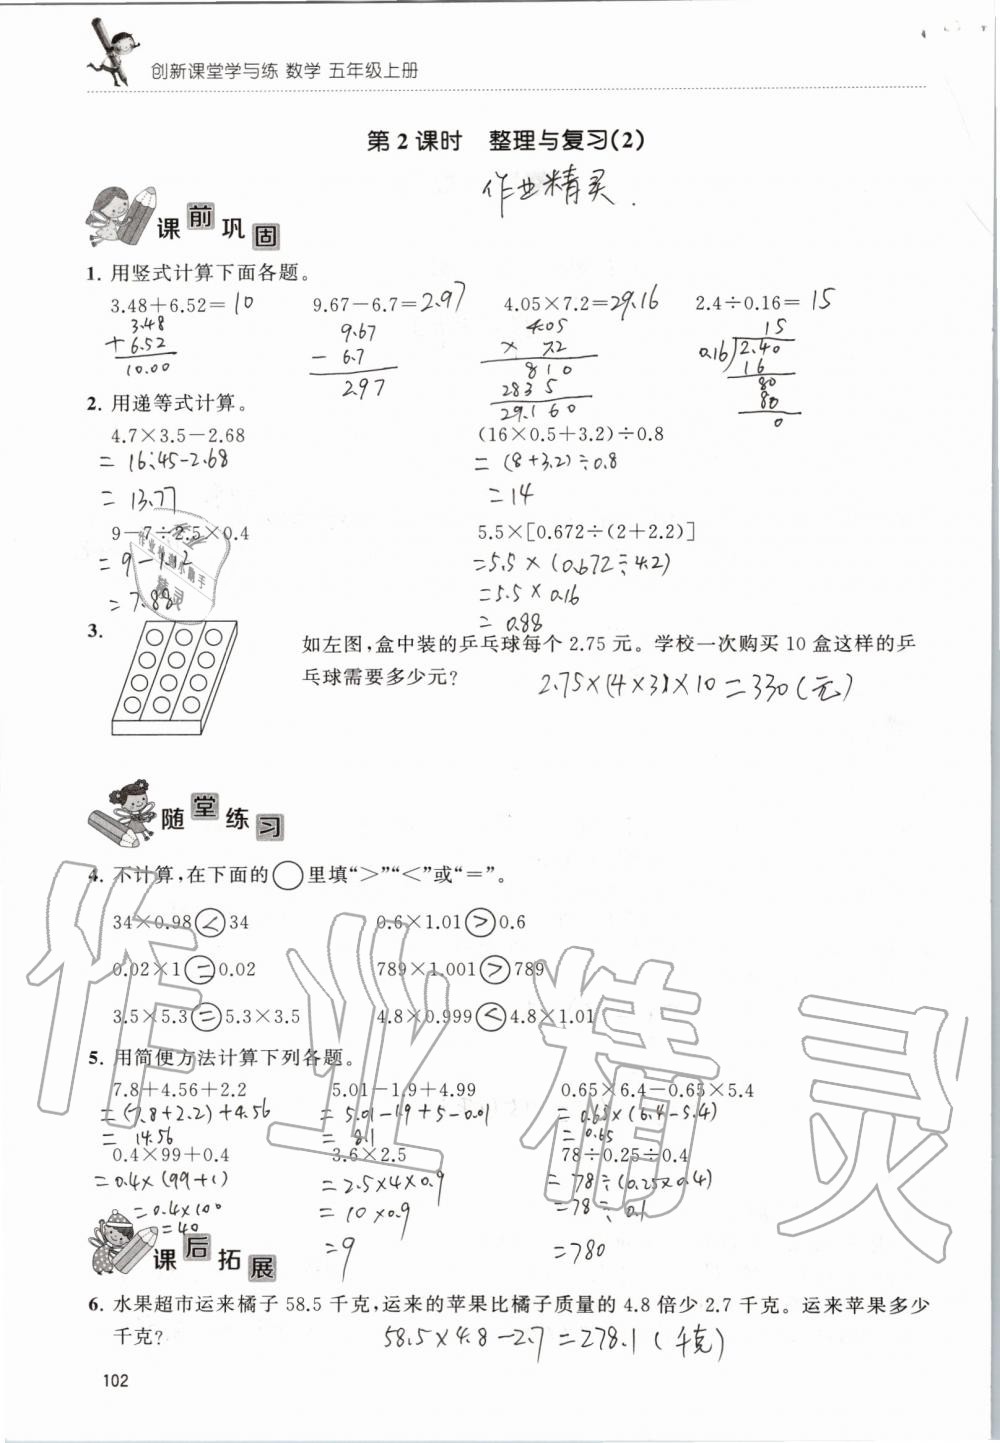 创新课堂学与练 数学 五年级上册
第2课时 整理与复习(2)
作业精灵.
课前巩固
1. 用竖式计算下面各题。
3.48+6.52=10 9.67-6.7=2.97 4.05×7.2=29.16 2.4÷0.16=15
3.48 9.67 4.05 15
+6.52 - 6.7 × 7.2 0.16 2.40
10.00 2.97 810 16
2835 80
29.160 80
0
2. 用递等式计算。
4.7×3.5-2.68 (16×0.5+3.2)÷0.8
=16.45-2.68 =(8+3.2)÷0.8
=13.77 =14
9-7÷2.5×0.4 5.5×[0.672÷(2+2.2)]
=9-1.12 =5.5×(0.672÷4.2)
=7.88 =5.5×0.16
=0.88
作业检测小助手
精灵
3. 如左图,盒中装的乒乓球每个2.75元。学校一次购买10盒这样的乒
乓球需要多少元? 2.75×(4×3)×10=330(元)
随堂练习
4. 不计算,在下面的○里填“>”“<”或“=”。
34×0.98<34 0.6×1.01>0.6
0.02×1=0.02 789×1.001>789
3.5×5.3=5.3×3.5 4.8×0.999<4.8×1.01
5. 用简便方法计算下列各题。
7.8+4.56+2.2 5.01-1.9+4.99 0.65×6.4-0.65×5.4
=(7.8+2.2)+4.56 =5.01-1.9+5-0.01 =0.65×(6.4-5.4)
=14.56 =8.1 =0.65
0.4×99+0.4 3.6×2.5 78÷0.25÷0.4
=0.4×(99+1) =2.5×4×0.9 =78÷(0.25×0.4)
=0.4×100 =10×0.9 =78÷0.1
=40 =9 =780
课后拓展
6. 水果超市运来橘子58.5千克,运来的苹果比橘子质量的4.8倍少2.7千克。运来苹果多少
千克? 58.5×4.8-2.7=278.1(千克)
102
作业精灵